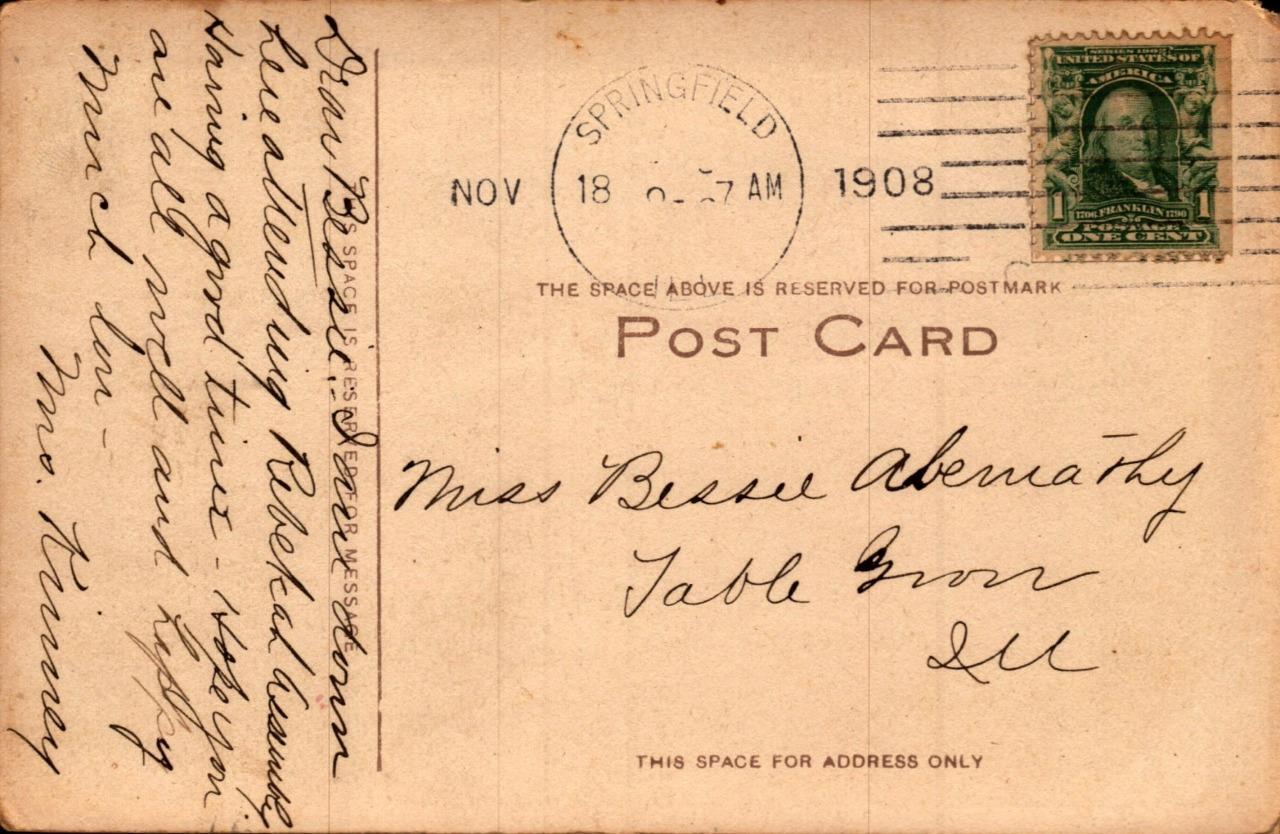 SERIES 1902
UNITED STATES OF
AMERICA
1 1706 FRANKLIN 1790 1
POSTAGE
ONE CENT
SPRINGFIELD
NOV 18 AM 1908
ILL
THE SPACE ABOVE IS RESERVED FOR POSTMARK
POST CARD
Miss Bessie Abernathy
Table Grove
Ill
THIS SPACE FOR ADDRESS ONLY
THIS SPACE IS RESERVED FOR MESSAGE
Dear Bessie:- I am down
here attending Rebekah Assembly
Having a good time - Hope you
are all well and happy
Much love -
Mrs. Kinney